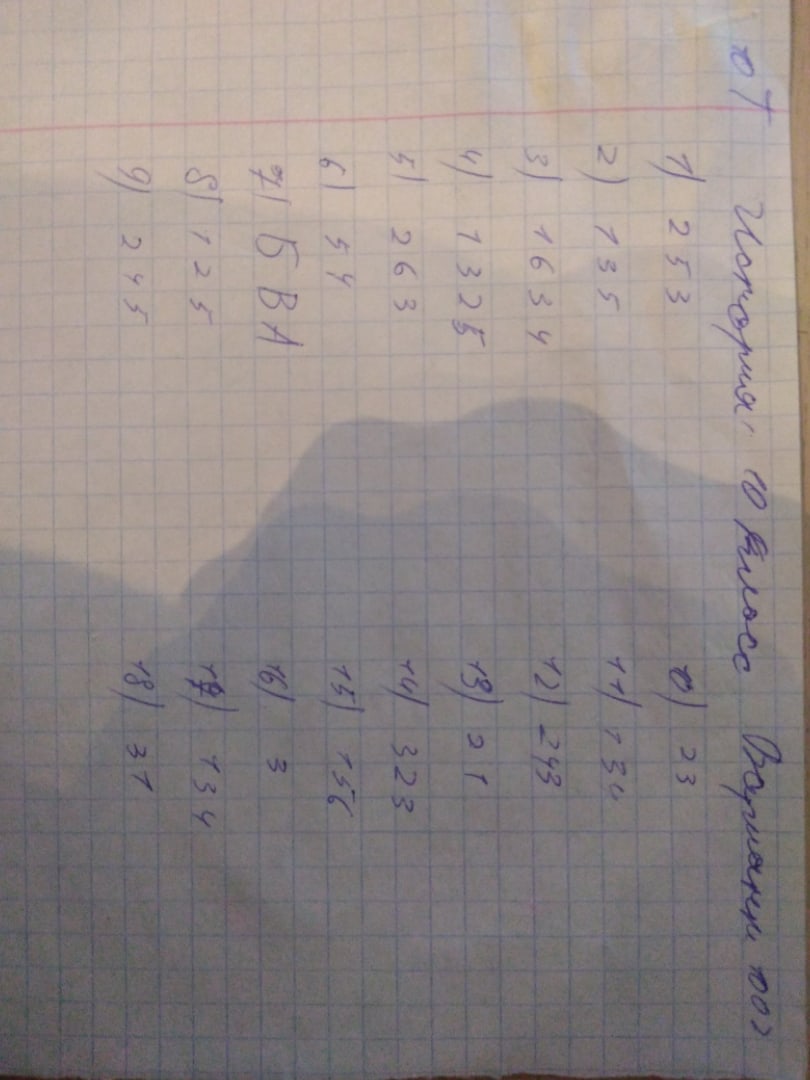 История. 10 класс Вариант 1007
1) 253
2) 135
3) 1634
4) 1325
5) 263
6) 54
7) БВА
8) 125
9) 245
10) 23
11) 134
12) 243
13) 21
14) 323
15) 156
16) 3
17) 134
18) 31